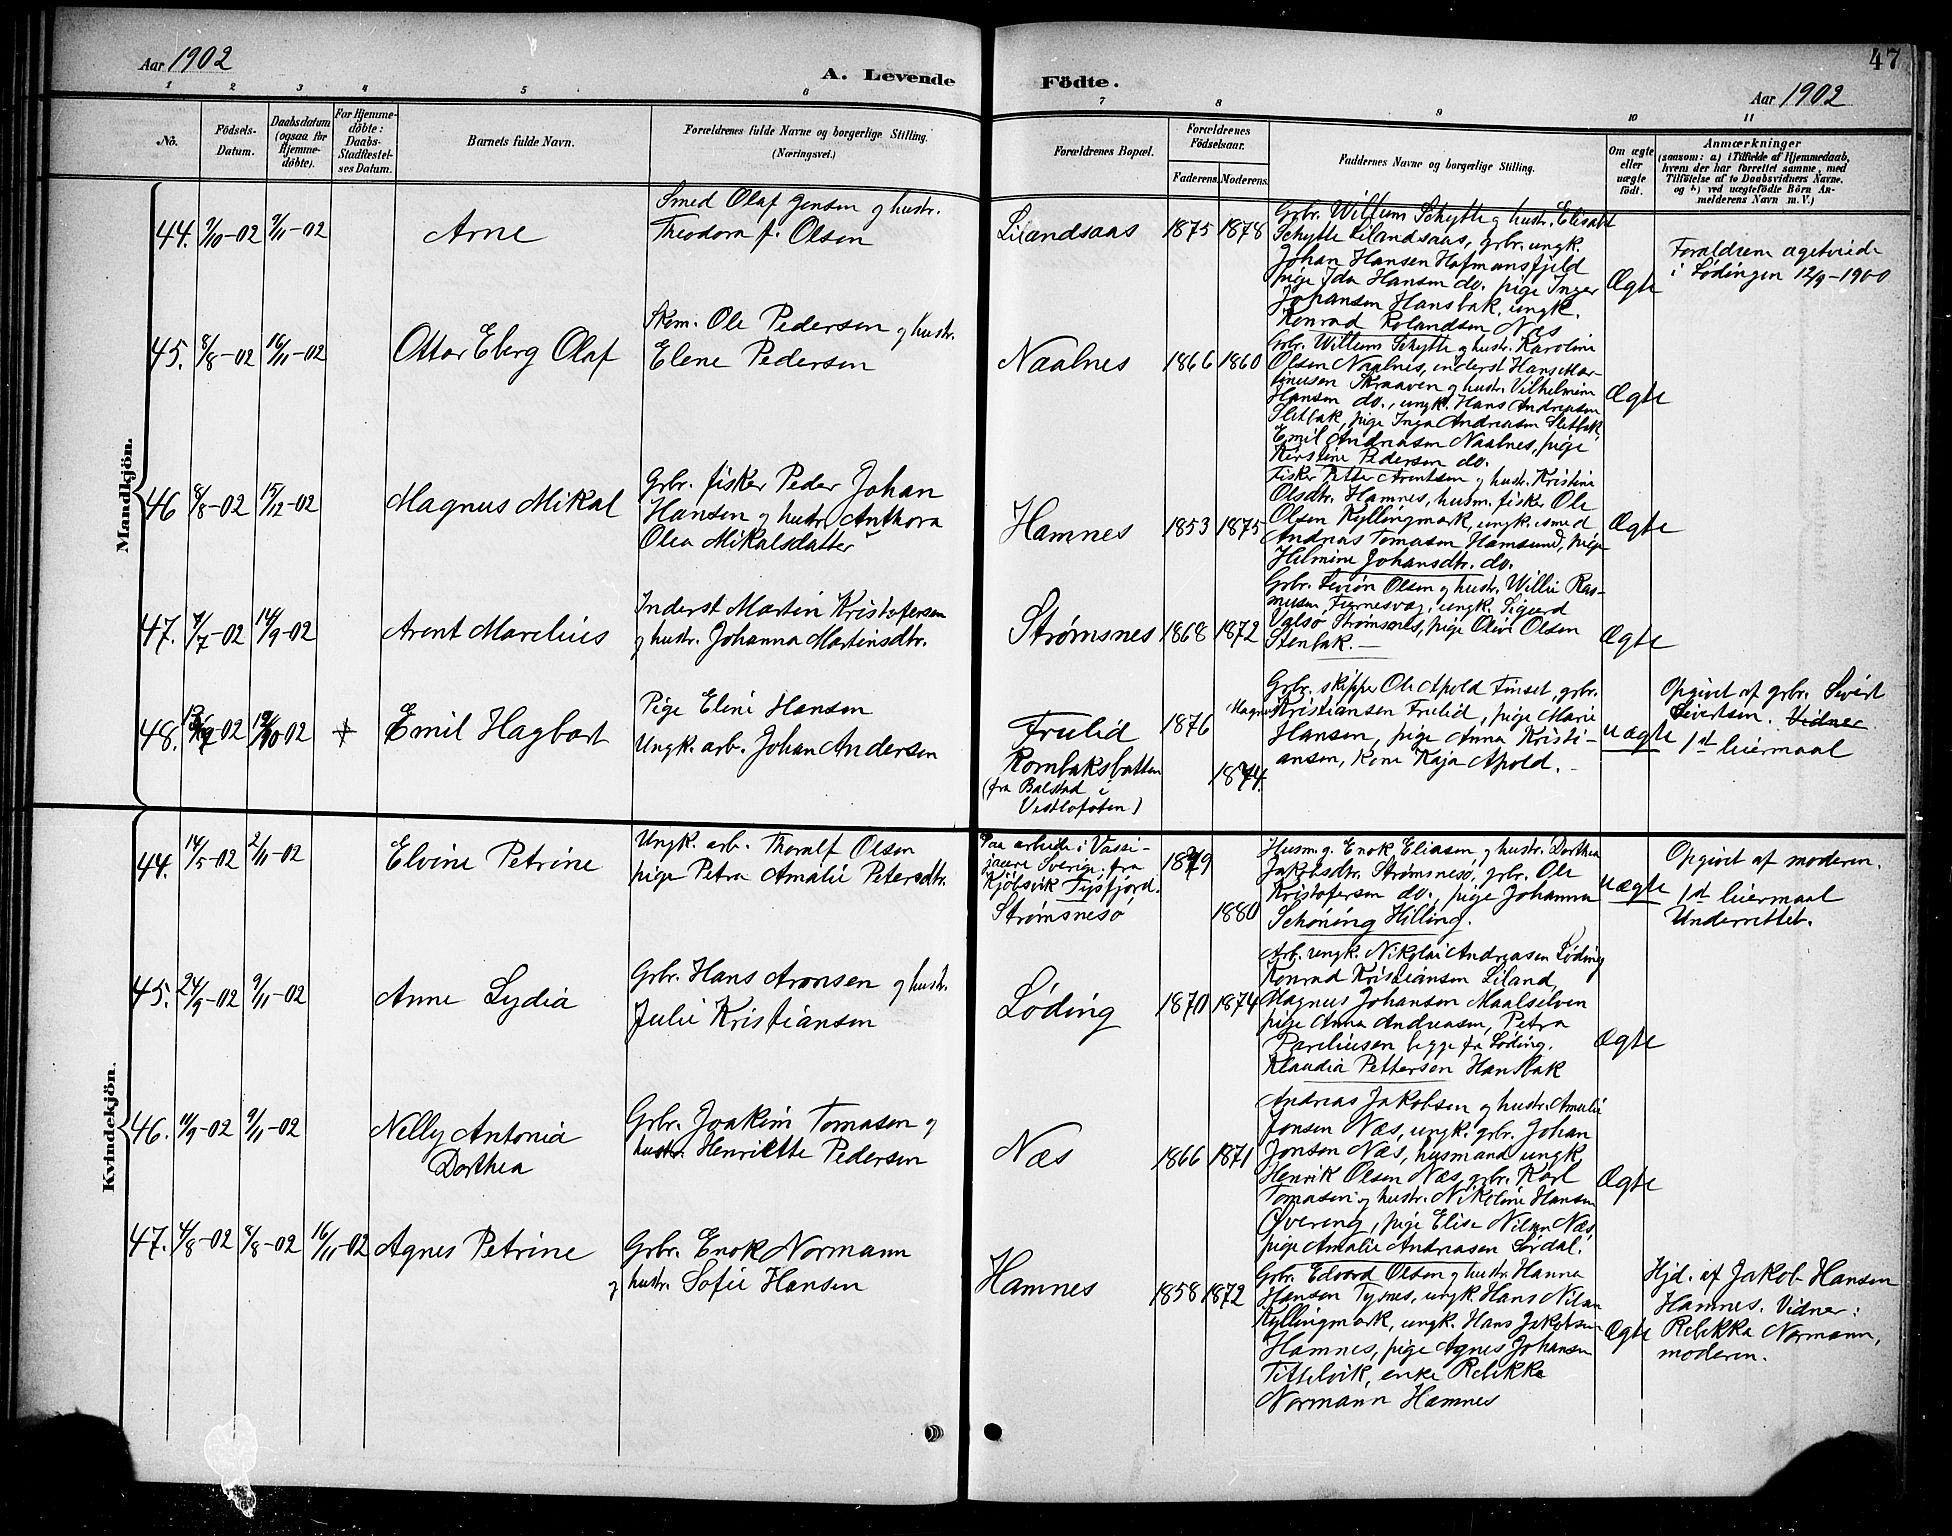 Aar 1902
A. Levende
Födte.
47
Aar 1902
1 2 3 4 5 6 7 8 9 10 11
No.
Födsels-
Datum.
Daabsdatum
(ogsaa for
Hjemme-
döbte).
For Hjemme-
döbte:
Daabs-
Stadfæstel-
ses Datum.
Barnets fulde Navn.
Forældrenes fulde Navne og borgerlige Stilling.
(Næringsvei.)
Forældrenes Bopæl.
Forældrenes
Födselsaar.
Faderens. Moderens.
Faddernes Navne og borgerlige Stilling.
Om ægte
eller
uægte
födt.
Anmærkninger
(saasom: a) i Tilfælde af Hjemmedaab,
hvem der har forrettet samme, med
Tilföielse af to Daabsvidners Navne,
og b) ved uægtefödte Börn An-
melderens Navn m. V.)
Mandkjön.
44. 7/10-02 9/11-02
Arne
Smed Olaf Jensen og hustr.
Theodora f. Olsen
Lilandsaas
1875 1878
Grbr. Willum Schytte og hustr. Elisabt
Schytte Lilandsaas, grbr. ungk.
Johan Hansen Hofmansfjeld
pige Ida Hansen do. pige Inger
Johansen Hansbak, ungk.
Konrad Rolandsen Næs
Ægte
Forældrene ægteviede
i Lødingen 12/9-1900
45. 8/8-02 16/11-02
Ottar Eberg Olaf
Skom. Ole Pedersen og hustr.
Elene Pedersen
Naalnes
1866 1860
Grbr. Willum Schytte og hustr. Karoline
Olsen Naalnes, inderst Hans Mar-
tinusen Skraaven og hustr. Vilhelmine
Hansen do., ungk. Hans Andreasen
Sletbak, pige Inga Andreasen Sletbak
Emil Andreasen Naalnes, pige
Kirstine Pedersen do.
Ægte
46 8/8-02 15/12-02
Magnus Mikal
Grbr. fisker Peder Johan
Hansen og hustr. Anthora
Olea Mikalsdatter
Hamnes
1853 1875
Fisker Petter Arentsen og hustr. Kristine
Olsdtr. Hamnes, husm. fisker Ole
Olsen Kyllingmark, ungk. smed
Andreas Tomasen Hamsund, pige
Hilmine Johansdtr. do.
Ægte
47. 4/7-02 14/9-02
Arent Marelius
Inderst Martin Kristofersen
og hustr. Johanna Martinsdtr.
Strømsnes
1868 1872
Grbr. Sivion Olsen og hustr. Willie Ras-
musen Furnesvag, ungk. Sigurd
Valsø Strømsnes, pige Olive Olsen
Stenbak. —
Ægte
48. 02 19/10 02 +
Emil Hagbart
Pige Eline Hansen
Ungk. arb. Johan Andersen
Frulid
Rombaksbotten
(fra Balstad i
Vestlofoten)
1876
1874.
Grbr. skipper Ole Apold Finset, grbr.
Magnus Kristiansen Frulid, pige Marie
Hansen, pige Anna Kristi-
ansen, Kone Kaja Apold. —
uægte
Opgivet af grbr. Sivert
Sivertsen. Vidner
1st leiermaal
Kvindekjön.
44. 14/5-02 2/11-02
Elvine Petrine
Ungk. arb. Thoralf Olsen
pige Petra Amalie Petersdtr.
Paa arbeide i Vassi-
jaure Sverige, fra
Kjøbsvik Tysfjord.
Strømsnesø
1879
1880
Husm. g. Enok Eliasen og hustr. Dorthea
Jakobsdtr. Strømsnesø, grbr. Ole
Kristofersen do., pige Johanna
Schøning Hilling.
uægte
Opgivet af moderen.
1st leiermaal
Underrettet.
45. 24/9-02 9/11-02
Anne Lydia
Grbr. Hans Aronsen og hustr.
Julie Kristiansen
Løding
1870 1874
Arb. ungk. Nikolai Andreasen Løding
Konrad Kristiansen Liland,
Magnus Johansen Maalselven
pige Anna Andreasen, Petra
Pareliusen begge fra Løding.
Klaudia Pettersen Hansbak
Ægte
46. 11/9-02 9/11-02
Nelly Antonia
Dorthea
Grbr. Joakim Tomasen og
hustr. Henriette Pedersen
Næs
1866 1871
Andreas Jakobsen og hustr. Amalie
Jonsen Næs, ungk. grbr. Johan
Jonsen Næs, husmand ungk.
Henrik Olsen Næs, grbr. Karl
Tomasen og hustr. Nikoline Hansen
Øvereng, pige Elise Nilsen Næs,
pige Amalie Andreasen Sørdal.
Ægte
47. 4/8-02 8/8-02 16/11-02
Agnes Petrine
Grbr. Enok Normann
og hustr. Sofie Hansen
Hamnes
1858 1872
Grbr. Edvard Olsen og hustr. Hanna
Hansen Tysnes, ungk. Hans Nilsen
Kyllingmark, ungk. Hans Jakobsen
Hamnes, pige Agnes Johansen
Tittelvik, enke Rebekka
Normann Hamnes
Ægte
Hjd. af Jakob Hansen
Hamnes. Vidner:
Rebekka Normann,
moderen.